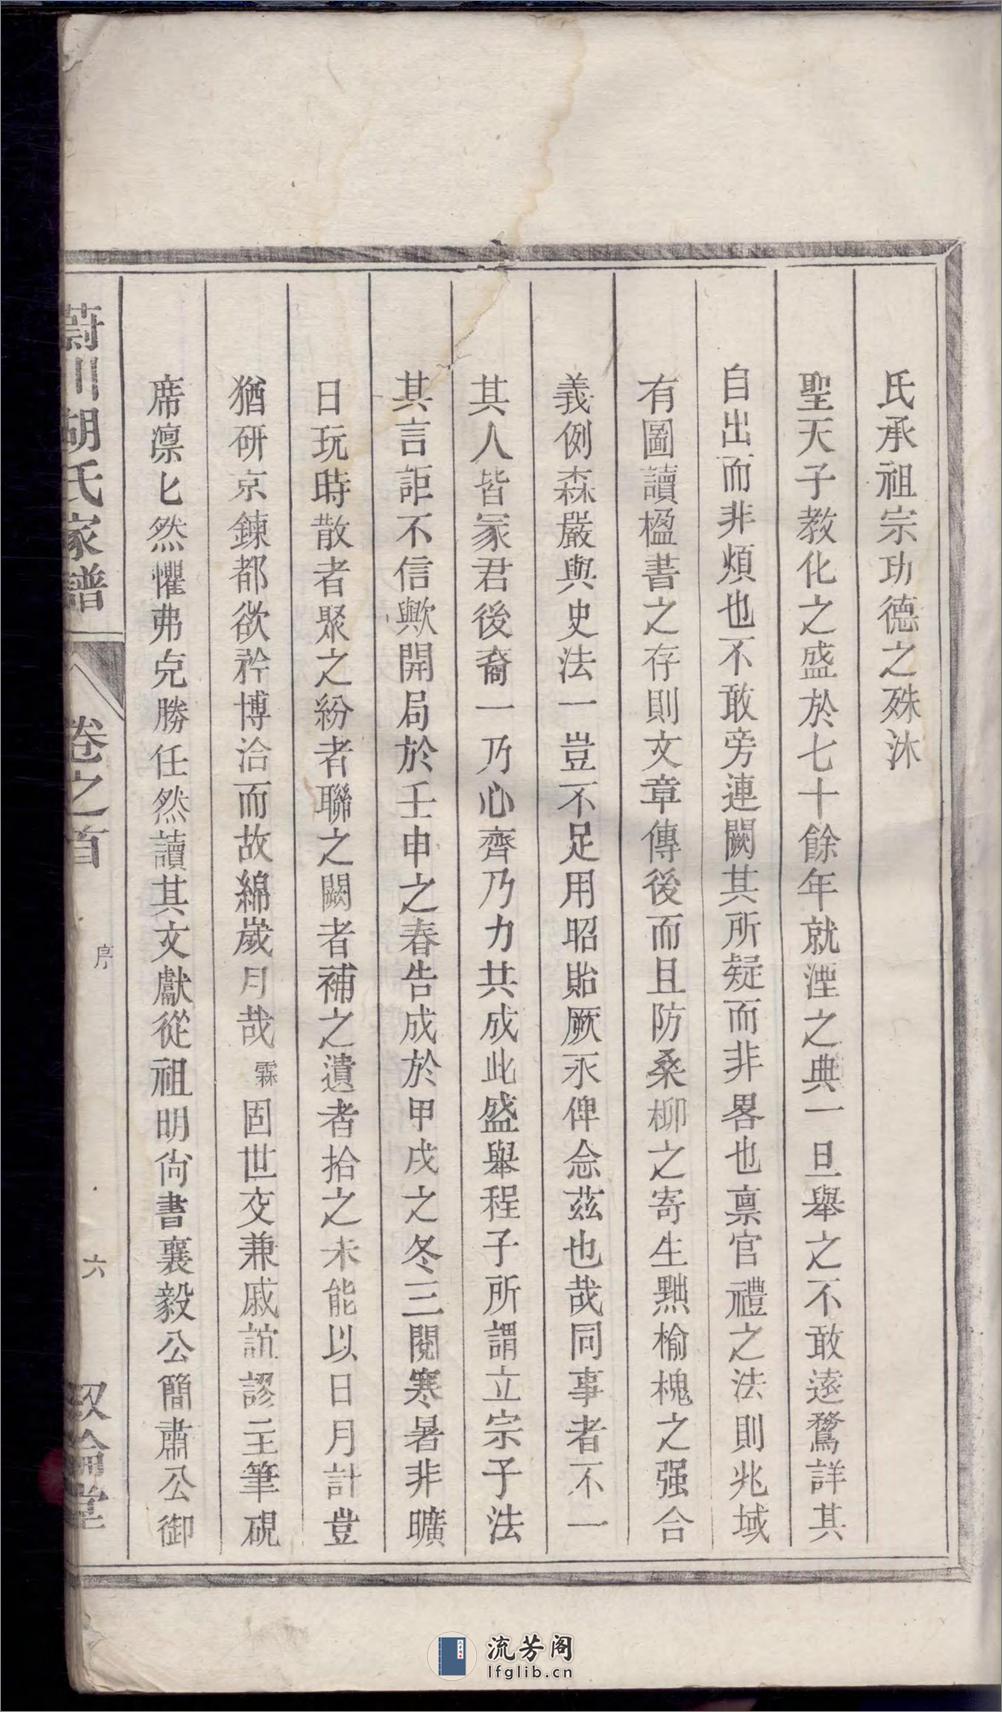 氏承祖宗功德之殊沐
聖天子教化之盛於七十餘年就湮之典一旦舉之不敢遠騖詳其
自出而非煩也不敢旁連闕其所疑而非畧也禀官禮之法則兆域
有圖讀楹書之存則文章傳後而且防桑柳之寄生黜榆槐之强合
義例森嚴與史法一豈不足用昭貽厥永俾念茲也哉同事者不一
其人皆冢君後裔一乃心齊乃力共成此盛舉程子所謂立宗子法
其言詎不信歟開局於壬申之春告成於甲戌之冬三閱寒暑非曠
日玩時散者聚之紛者聯之闕者補之遺者拾之未能以日月計豈
猶研京鍊都欲矜博洽而故綿歲月哉霖固世交兼戚誼謬主筆硯
席凛匕然懼弗克勝任然讀其文獻從祖明尚書襄毅公簡肅公御
蔚川胡氏家譜 卷之首 序 六 敘倫堂
流芳阁
lfglib.cn